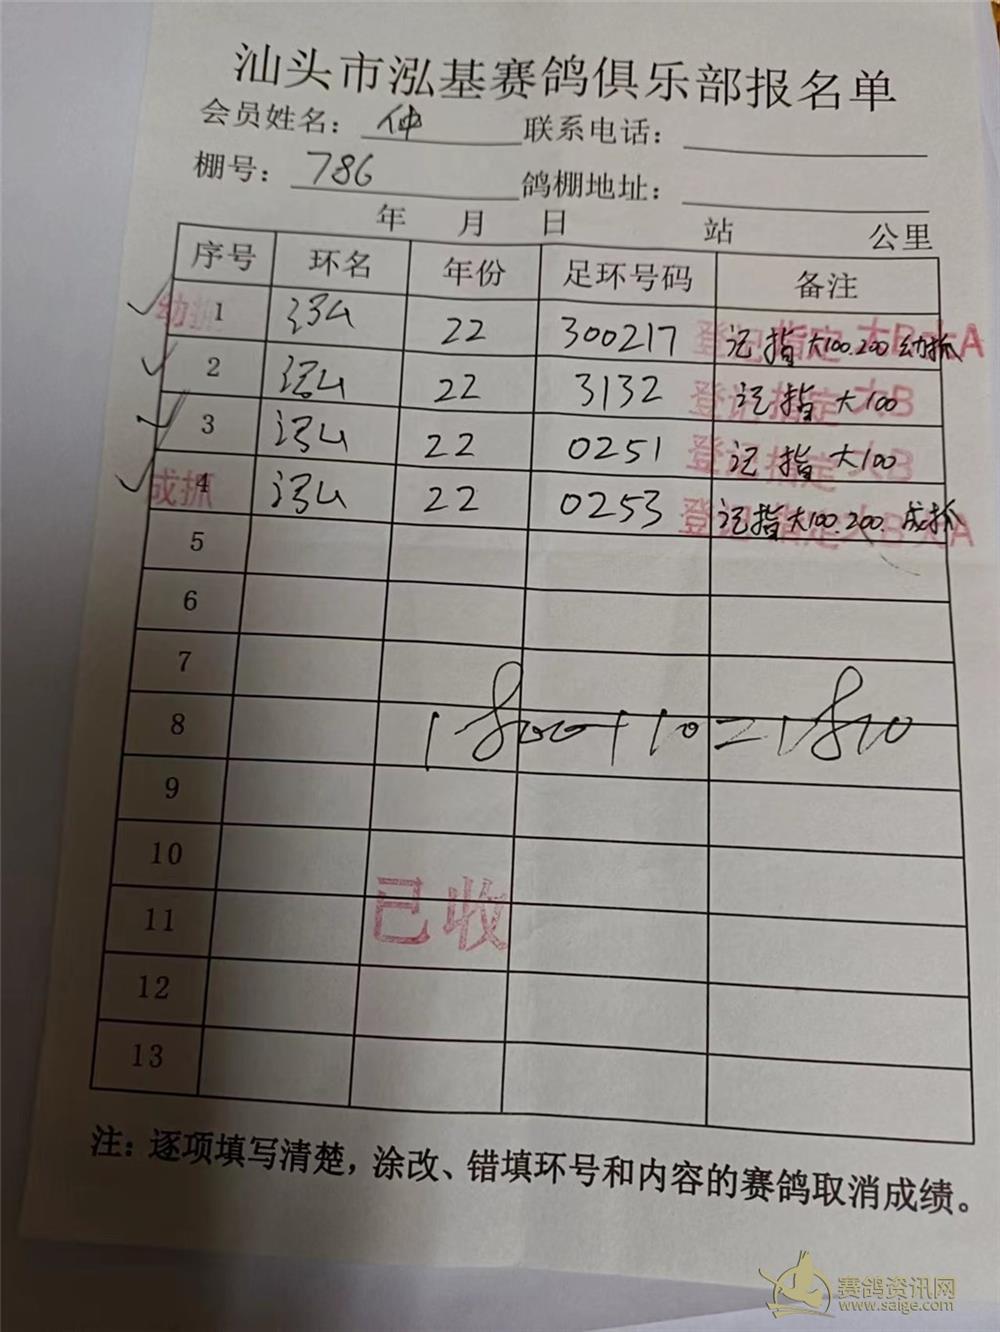 汕头市泓基赛鸽俱乐部报名单
会员姓名： 仲 联系电话：
棚号： 786 鸽棚地址：
年 月 日 站 公里
序号 环名 年份 足环号码 备注
幼抓 1 汕 22 300217 登记指定大B大A 记指大100.200幼抓
2 汕 22 3132 登记指定大B 记指大100
3 汕 22 0251 登记指定大B 记指大100
成抓 4 汕 22 0253 登记指定大B大A 记指大100.200.成抓
5
6
7
8 1800+10=1810
9
10
11 已收
12
13
注：逐项填写清楚，涂改、错填环号和内容的赛鸽取消成绩。
赛鸽资讯网
www.saige.com